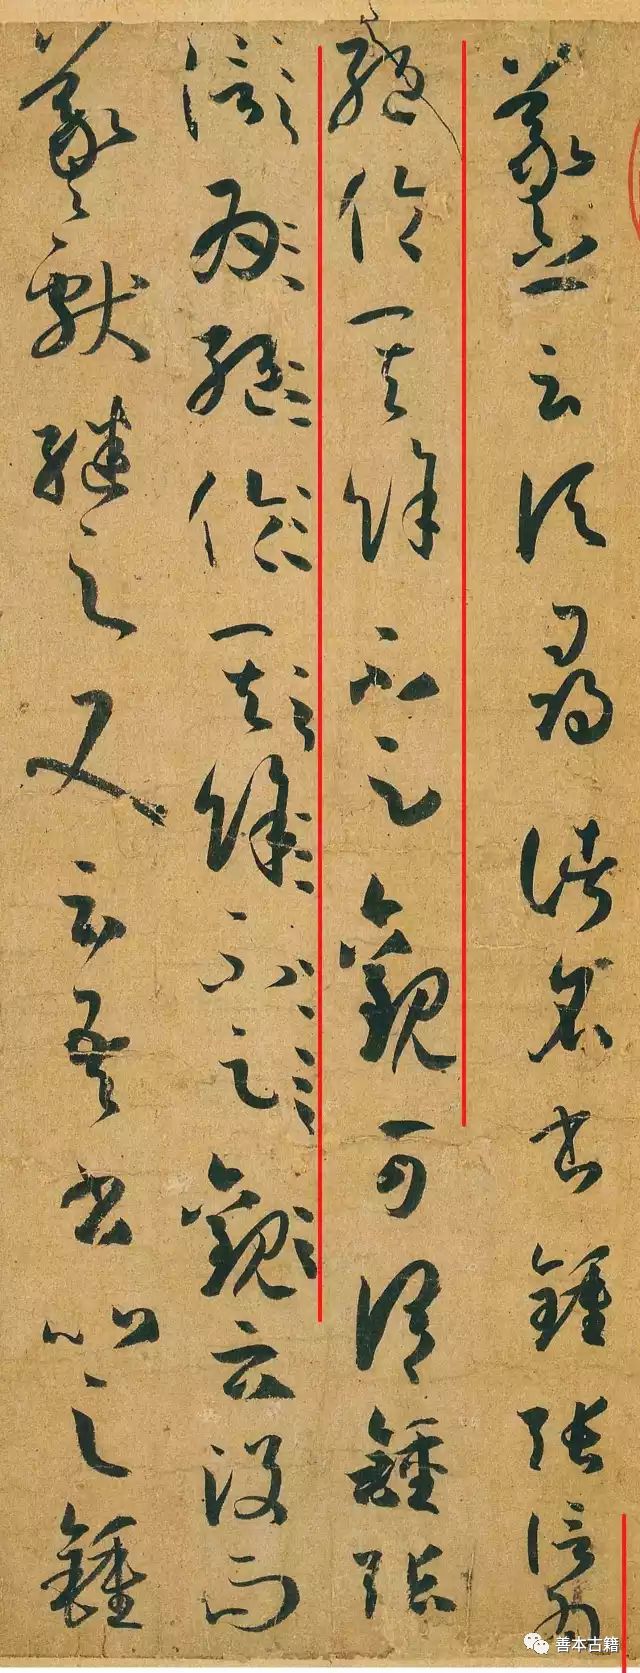 羲之云頃尋諸名書鍾張信為
絕倫其餘不足觀可謂鍾張
信為絕倫其餘不足觀云沒而
羲獻繼之又云吾書比之鍾
善本古籍